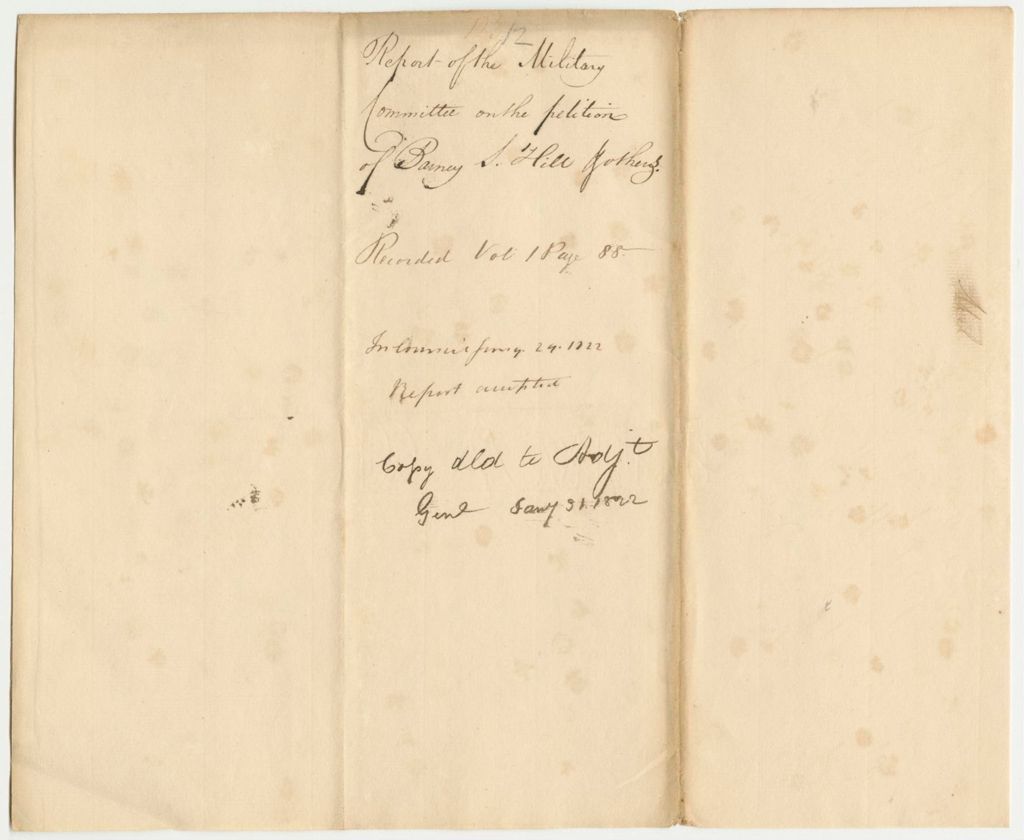 Report of the Military
Committee on the petition
of Barney S. Hill & others.
Recorded Vol 1 Page 88
In Council Jany. 24. 1822
Report accepted
Copy dld to Adjt.
Genl Jany 31. 1822